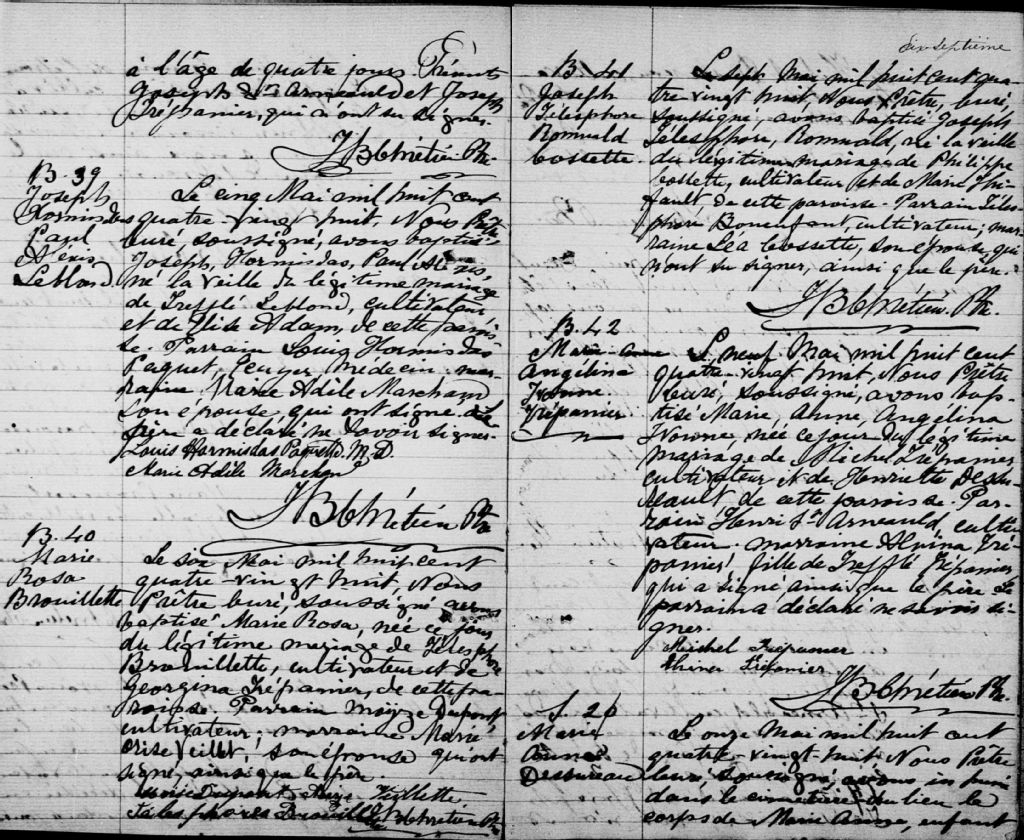 à l'âge de quatre jours. Présents
Joseph St Arneauld et Joseph
Trépanier, qui n'ont su signer.
JB Chrétien Ptre
B. 39
Joseph
Hormisdas
Paul
Alexis
Leblond
Le cinq Mai mil huit cent
quatre-vingt huit, Nous Prêtre
Curé, soussigné, avons baptisé
Joseph, Hormisdas, Paul Alexis,
né la veille du légitime mariage
de Trefflé Leblond, cultivateur
et de Elise Adam, de cette parois-
se. Parrain Louis Hormisdas
Paquet, Ecuyer, médecin mar-
raine, Marie Adèle Marchand
son épouse, qui ont signé. Le
père a déclaré ne savoir signer.
Louis Hormisdas Paquet M.D.
Marie Adèle Marchand
JB Chrétien Ptre
B. 40
Marie
Rosa
Brouillette
Le six Mai mil huit cent
quatre-vingt huit, Nous
Prêtre Curé, soussigné avons
baptisé Marie Rosa, née ce jour
du légitime mariage de Télesphore
Brouillette, cultivateur et de
Georgina Trépanier, de cette pa-
roisse. Parrain Moyze Dupont
cultivateur; marraine Marie
Veillet, son épouse qui ont
signé, ainsi que le père.
Moise Dupont
Telesphore Brouillette JB Chrétien Ptre
Dix-Septième
B 41
Joseph
Télesphore
Romuald
Cossette
Le sept Mai mil huit cent qua-
tre-vingt huit, Nous Prêtre, Curé,
soussigné, avons baptisé Joseph
Télesphore, Romuald, né la veille
du légitime mariage de Philippe
Cossette, cultivateur et de Marie Thi-
fault de cette paroisse. Parrain Téles-
phore Bonenfant, cultivateur; mar-
raine Léa Cossette, son épouse, qui
n'ont su signer, ainsi que le père.
JB Chrétien Ptre
B. 42
Marie-Anne
Angélina
Yvonne
Trépanier
Le neuf Mai mil huit cent
quatre-vingt huit, Nous Prêtre
Curé, soussigné, avons bap-
tisé Marie, Anne, Angélina
Yvonne, née ce jour du légitime
mariage de Michel Trépanier
cultivateur et de Henriette Dessu-
reault de cette paroisse. Par-
rain Henri St Arneauld, culti-
vateur. marraine Alvina Tré-
panier, fille de Trefflé Trépanier,
qui a signé ainsi que le père. Le
parrain a déclaré ne savoir si-
gner.
Michel Trépanier
Trépanier
JB Chrétien Ptre
S. 20
Marie
Dessureau
Le onze Mai mil huit cent
quatre-vingt-huit Nous Prêtre
Curé, soussigné, avons inhumé
dans le cimetière du lieu le
corps de Marie enfant